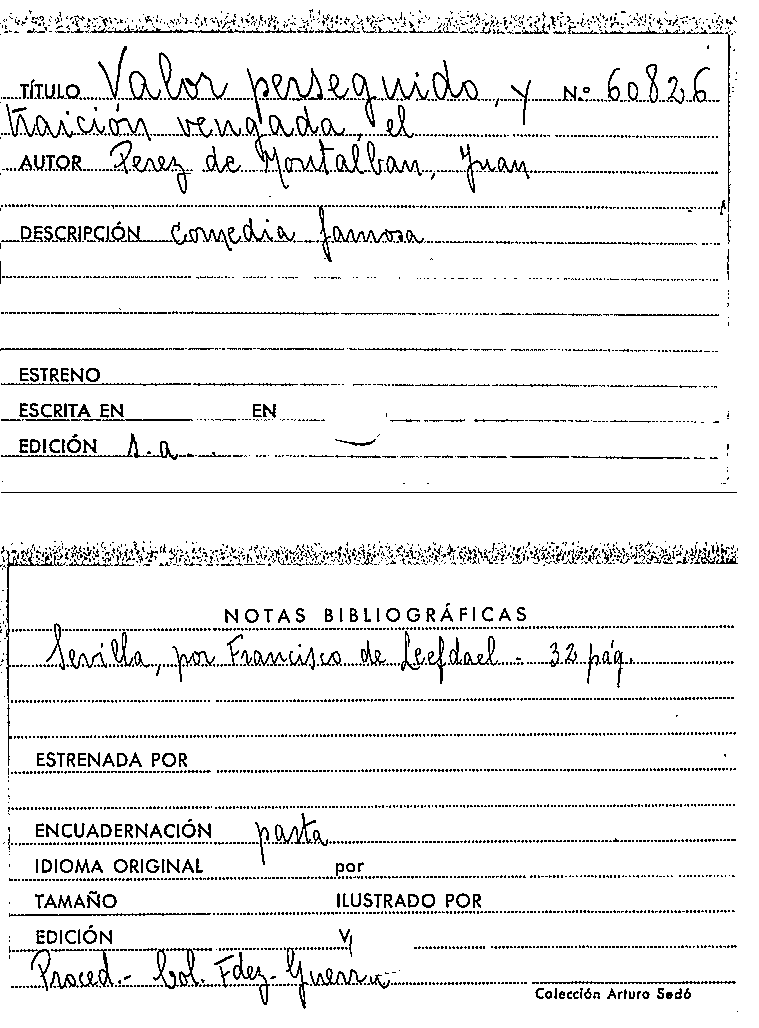 TÍTULO Valor perseguido, y N.º 60826
traición vengada, el
AUTOR Perez de Montalban, Juan
DESCRIPCIÓN comedia famosa
ESTRENO
ESCRITA EN EN
EDICIÓN s.a.
NOTAS BIBLIOGRÁFICAS
Sevilla, por Francisco de Leefdael - 32 pág.
ESTRENADA POR
ENCUADERNACIÓN pasta
IDIOMA ORIGINAL por
TAMAÑO ILUSTRADO POR
EDICIÓN
Proced.- Col. Fdez-Guerra
Colección Arturo Sedó